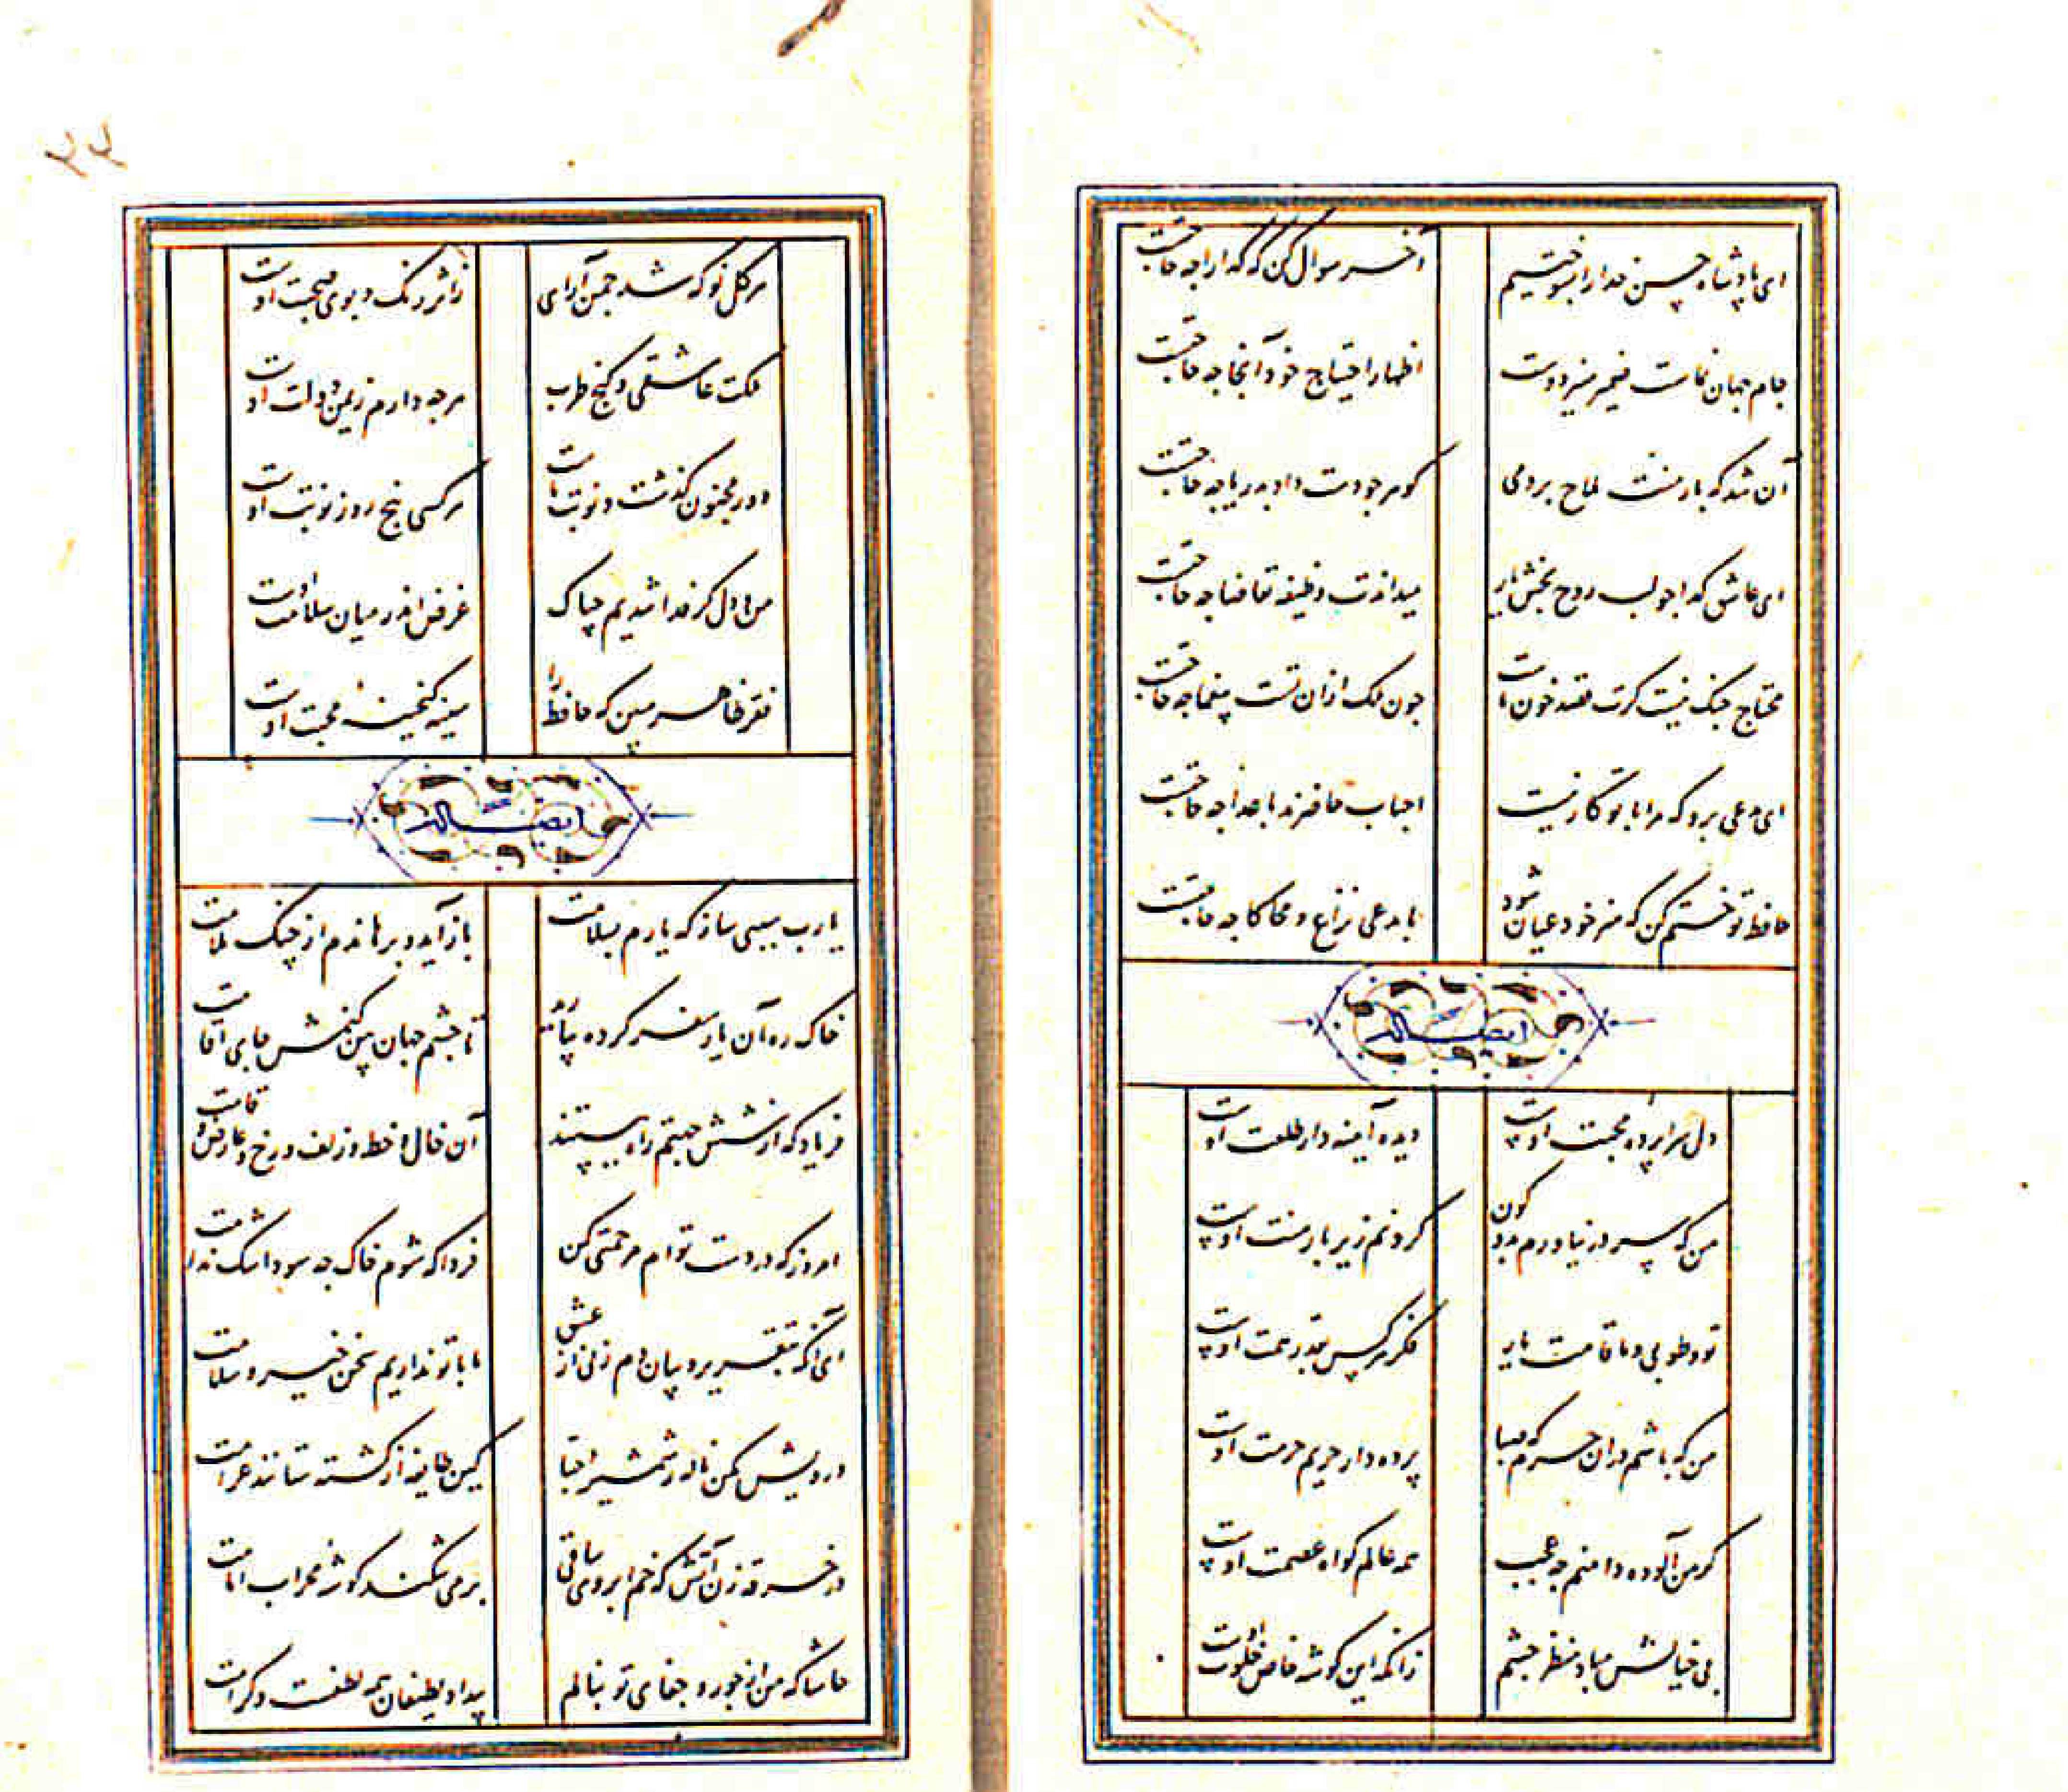 ای پادشاه حسن خدا را بسوختیم آخر سوال کن که کدا را چه حاجت
جام جهان نماست ضمیر منیر دوست اظهار احتیاج خود آنجا چه حاجت
آن شد که بار منت ملاح بردمی کوهر چو دست داد بدریا چه حاجت
ای عاشق کدا چو لب روح بخش یار میداندت وظیفه تقاضا چه حاجت
محتاج جنک نیست کرت قصد خون ماست چون ملک از ان تست یغما چه حاجت
ای مدعی برو که مرا با تو کار نیست احباب حاضرند باعدا چه حاجت
حافظ تو ختم کن که هنر خود عیان شود با مدعی نزاع و محاکا چه حاجت
ایضا له
دل سراپرده محبت اوست دیده آینه دار طلعت اوست
من که سر در نیاورم بدو کون کردنم زیر بار منت اوست
تو و طوبی و ما و قامت یار فکر هر کس بقدر همت اوست
من که باشم در ان حرم که صبا پرده دار حریم حرمت اوست
کر من آلوده دامنم چه عجب همه عالم کواه عصمت اوست
بی خیالش مباد منظر چشم زانکه این کوشه خاص خلوت اوست
۲۲
هر کل نو که شد چمن آرای ز اثر رنک و بوی صحبت اوست
ملکت عاشقی و کنج طرب هر چه دارم ز یمن دولت اوست
دور مجنون کذشت و نوبت ماست هر کسی پنج روز نوبت اوست
من و دل کر فدا شدیم چه باک غرض اندر میان سلامت اوست
فقر ظاهر مبین که حافظ را سینه کنجینه محبت اوست
ایضا له
یا رب سببی ساز که یارم بسلامت باز آید و برهاندم از چنک ملامت
خاک ره آن یار سفر کرده بیارید تا چشم جهان بین کنمش جای اقامت
فریاد که از شش جهتم راه ببستند آن خال و خط و زلف و رخ و عارض و قامت
امروز که در دست توام مرحمتی کن فردا که شوم خاک چه سود اشک ندامت
ای آنکه بتقریر و بیان دم زنی از عشق ما با تو نداریم سخن خیر و سلامت
درویش مکن ناله ز شمشیر احبا کین طایفه از کشته ستانند غرامت
در خرقه زن آتش که خم ابروی ساقی بر می شکند کوشه محراب امامت
حاشا که من از جور و جفای تو بنالم بیداد لطیفان همه لطفست و کرامت